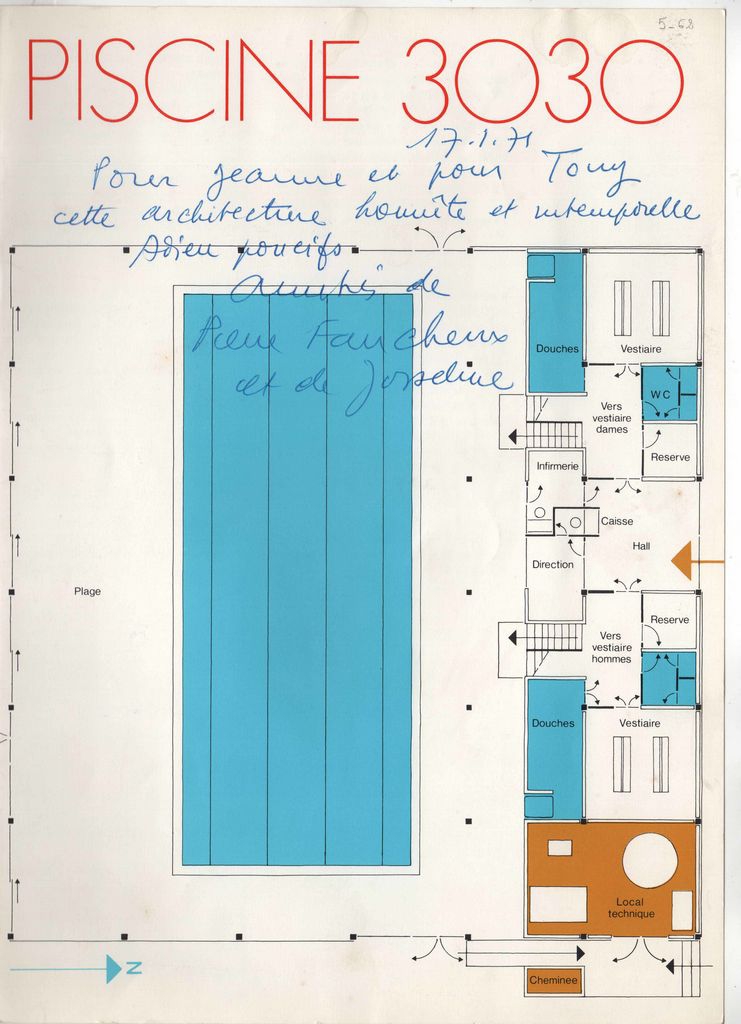 5-68
PISCINE 3030
17.1.71
Pour Jeanne et pour Tony
cette architecture honnête et intemporelle
Adieu poncifs
Amitiés de
Pierre Faucheux
et de Josseline
Douches
Vestiaire
Vers
vestiaire
dames
WC
Reserve
Infirmerie
Caisse
Hall
Direction
Plage
Vers
vestiaire
hommes
Reserve
Douches
Vestiaire
Local
technique
Cheminee
N